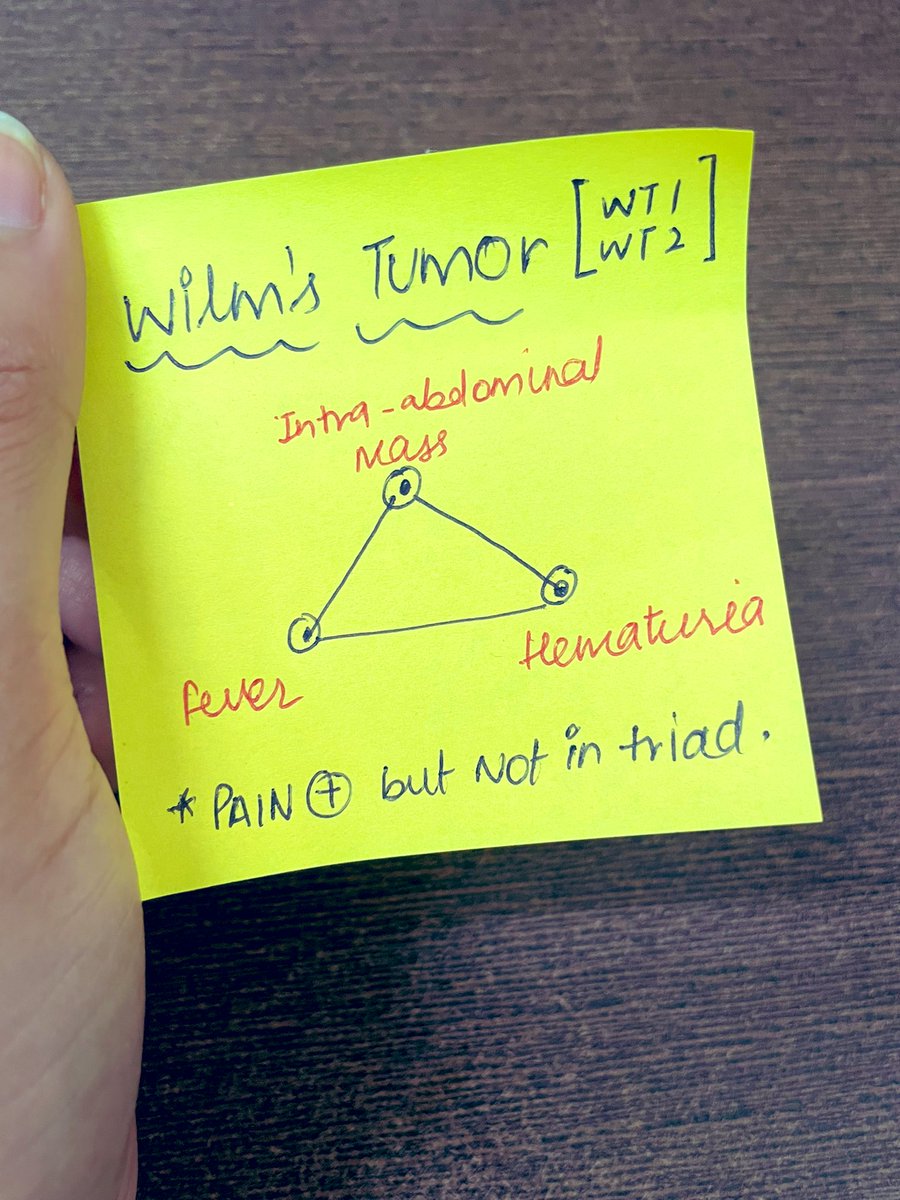 Wilm's Tumor [WT1
WT2]
Intra-abdominal
Mass
Fever
Hematuria
* PAIN ⊕ but Not in triad.